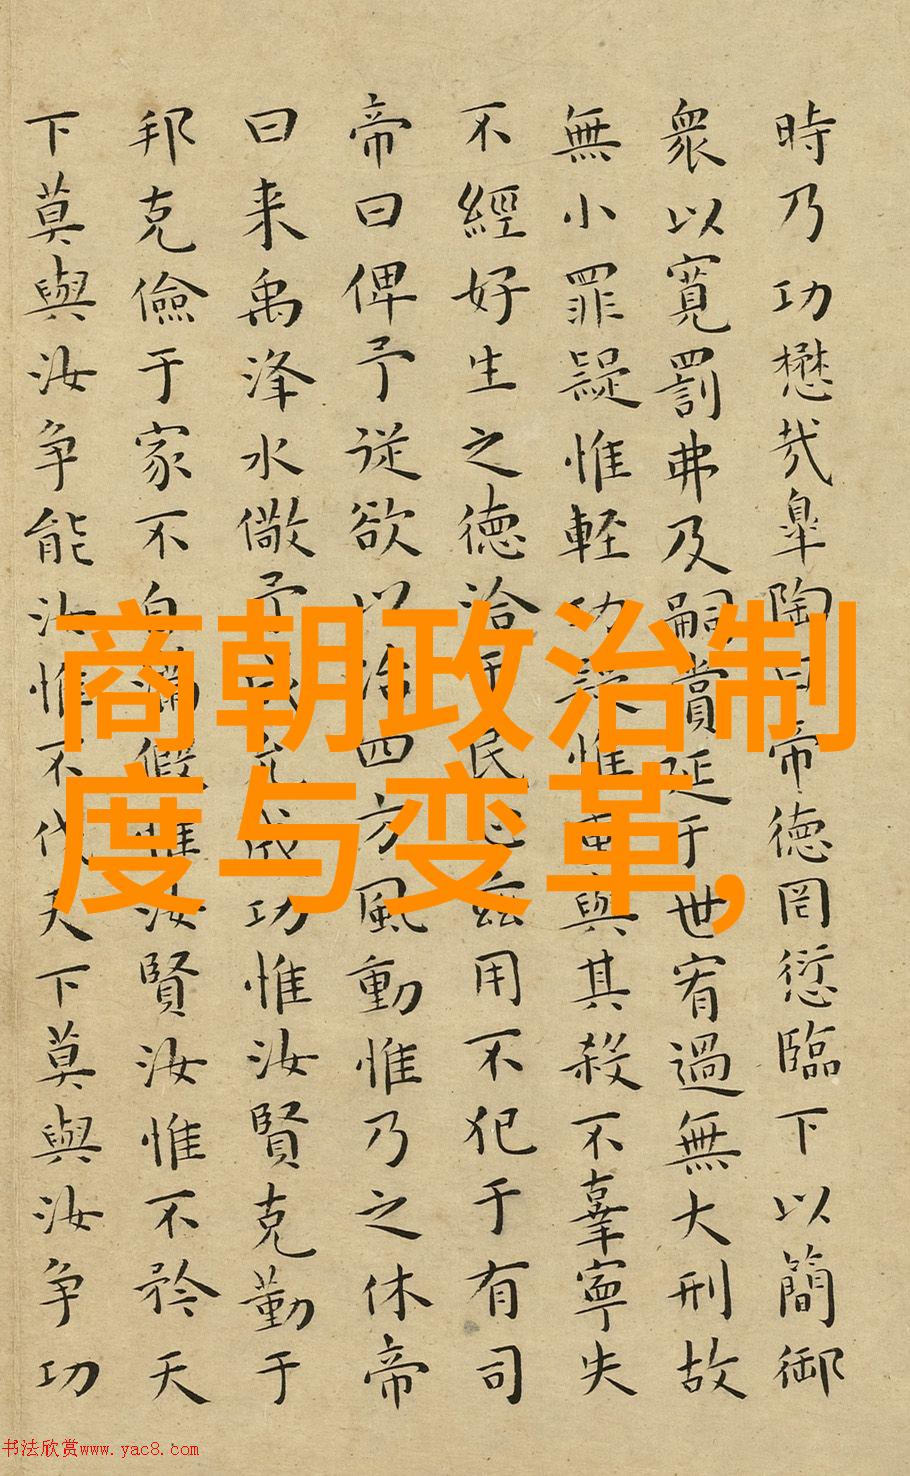 時乃功懋哉皐陶曰帝徳罔愆臨下以簡御
衆以寛罰弗及嗣賞延于世宥過無大刑故
無小罪疑惟軽功疑惟重與其殺不辜寧失
不經好生之徳洽于民心兹用不犯于有司
帝曰俾予従欲以治四方風動惟乃之休帝
曰来禹洚水儆予成允成功惟汝賢克勤于
邦克儉于家不自滿假惟汝賢汝惟不矜天
下莫與汝争能汝惟不伐天下莫與汝争功
商朝政治制
度与变革,
书法欣赏www.yac8.com